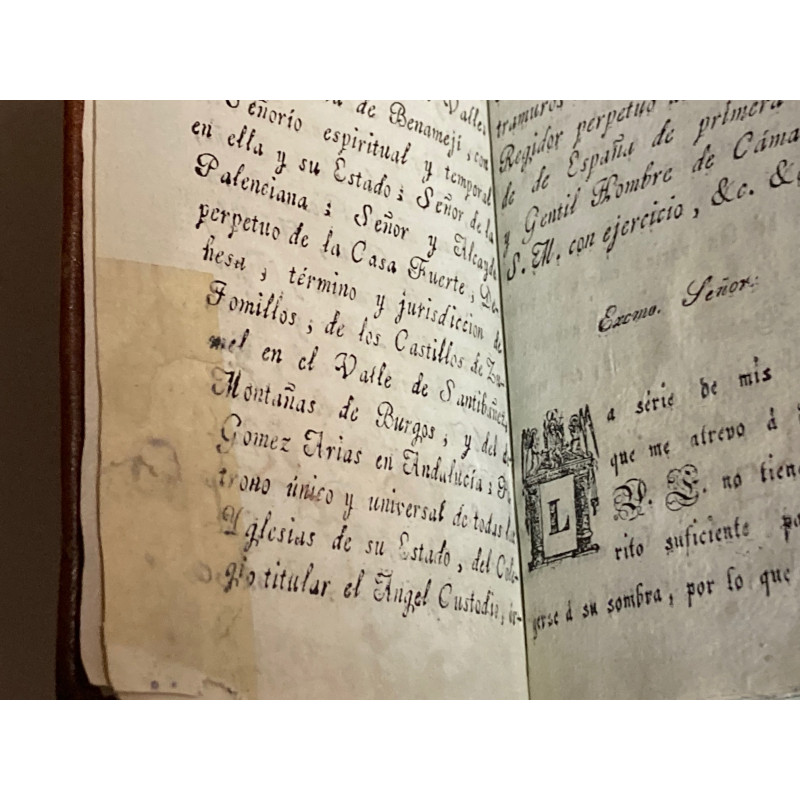 de Benamejí, con
Señorío espiritual y temporal
en ella y su Estado; Señor de la
Palenciana; Señor y Alcayde
perpetuo de la Casa Fuerte, De-
hesa, término y jurisdiccion de
Fomillos, de los Castillos de Zu-
mel en el Valle de Santibáñez,
Montañas de Burgos, y del de
Gomez Arias en Andalucía; Pa-
trono único y universal de todas las
Yglesias de su Estado, del Cole-
gio titular el Ángel Custodio, &
tramuros
Regidor perpetuo
de de España de primera
y Gentil Hombre de Cáma
S. M. con ejercicio, &c. &
Excmo. Señor:
La série de mis
que me atrevo á
V. E. no tiene
rito suficiente pa
gerse á su sombra, por lo que